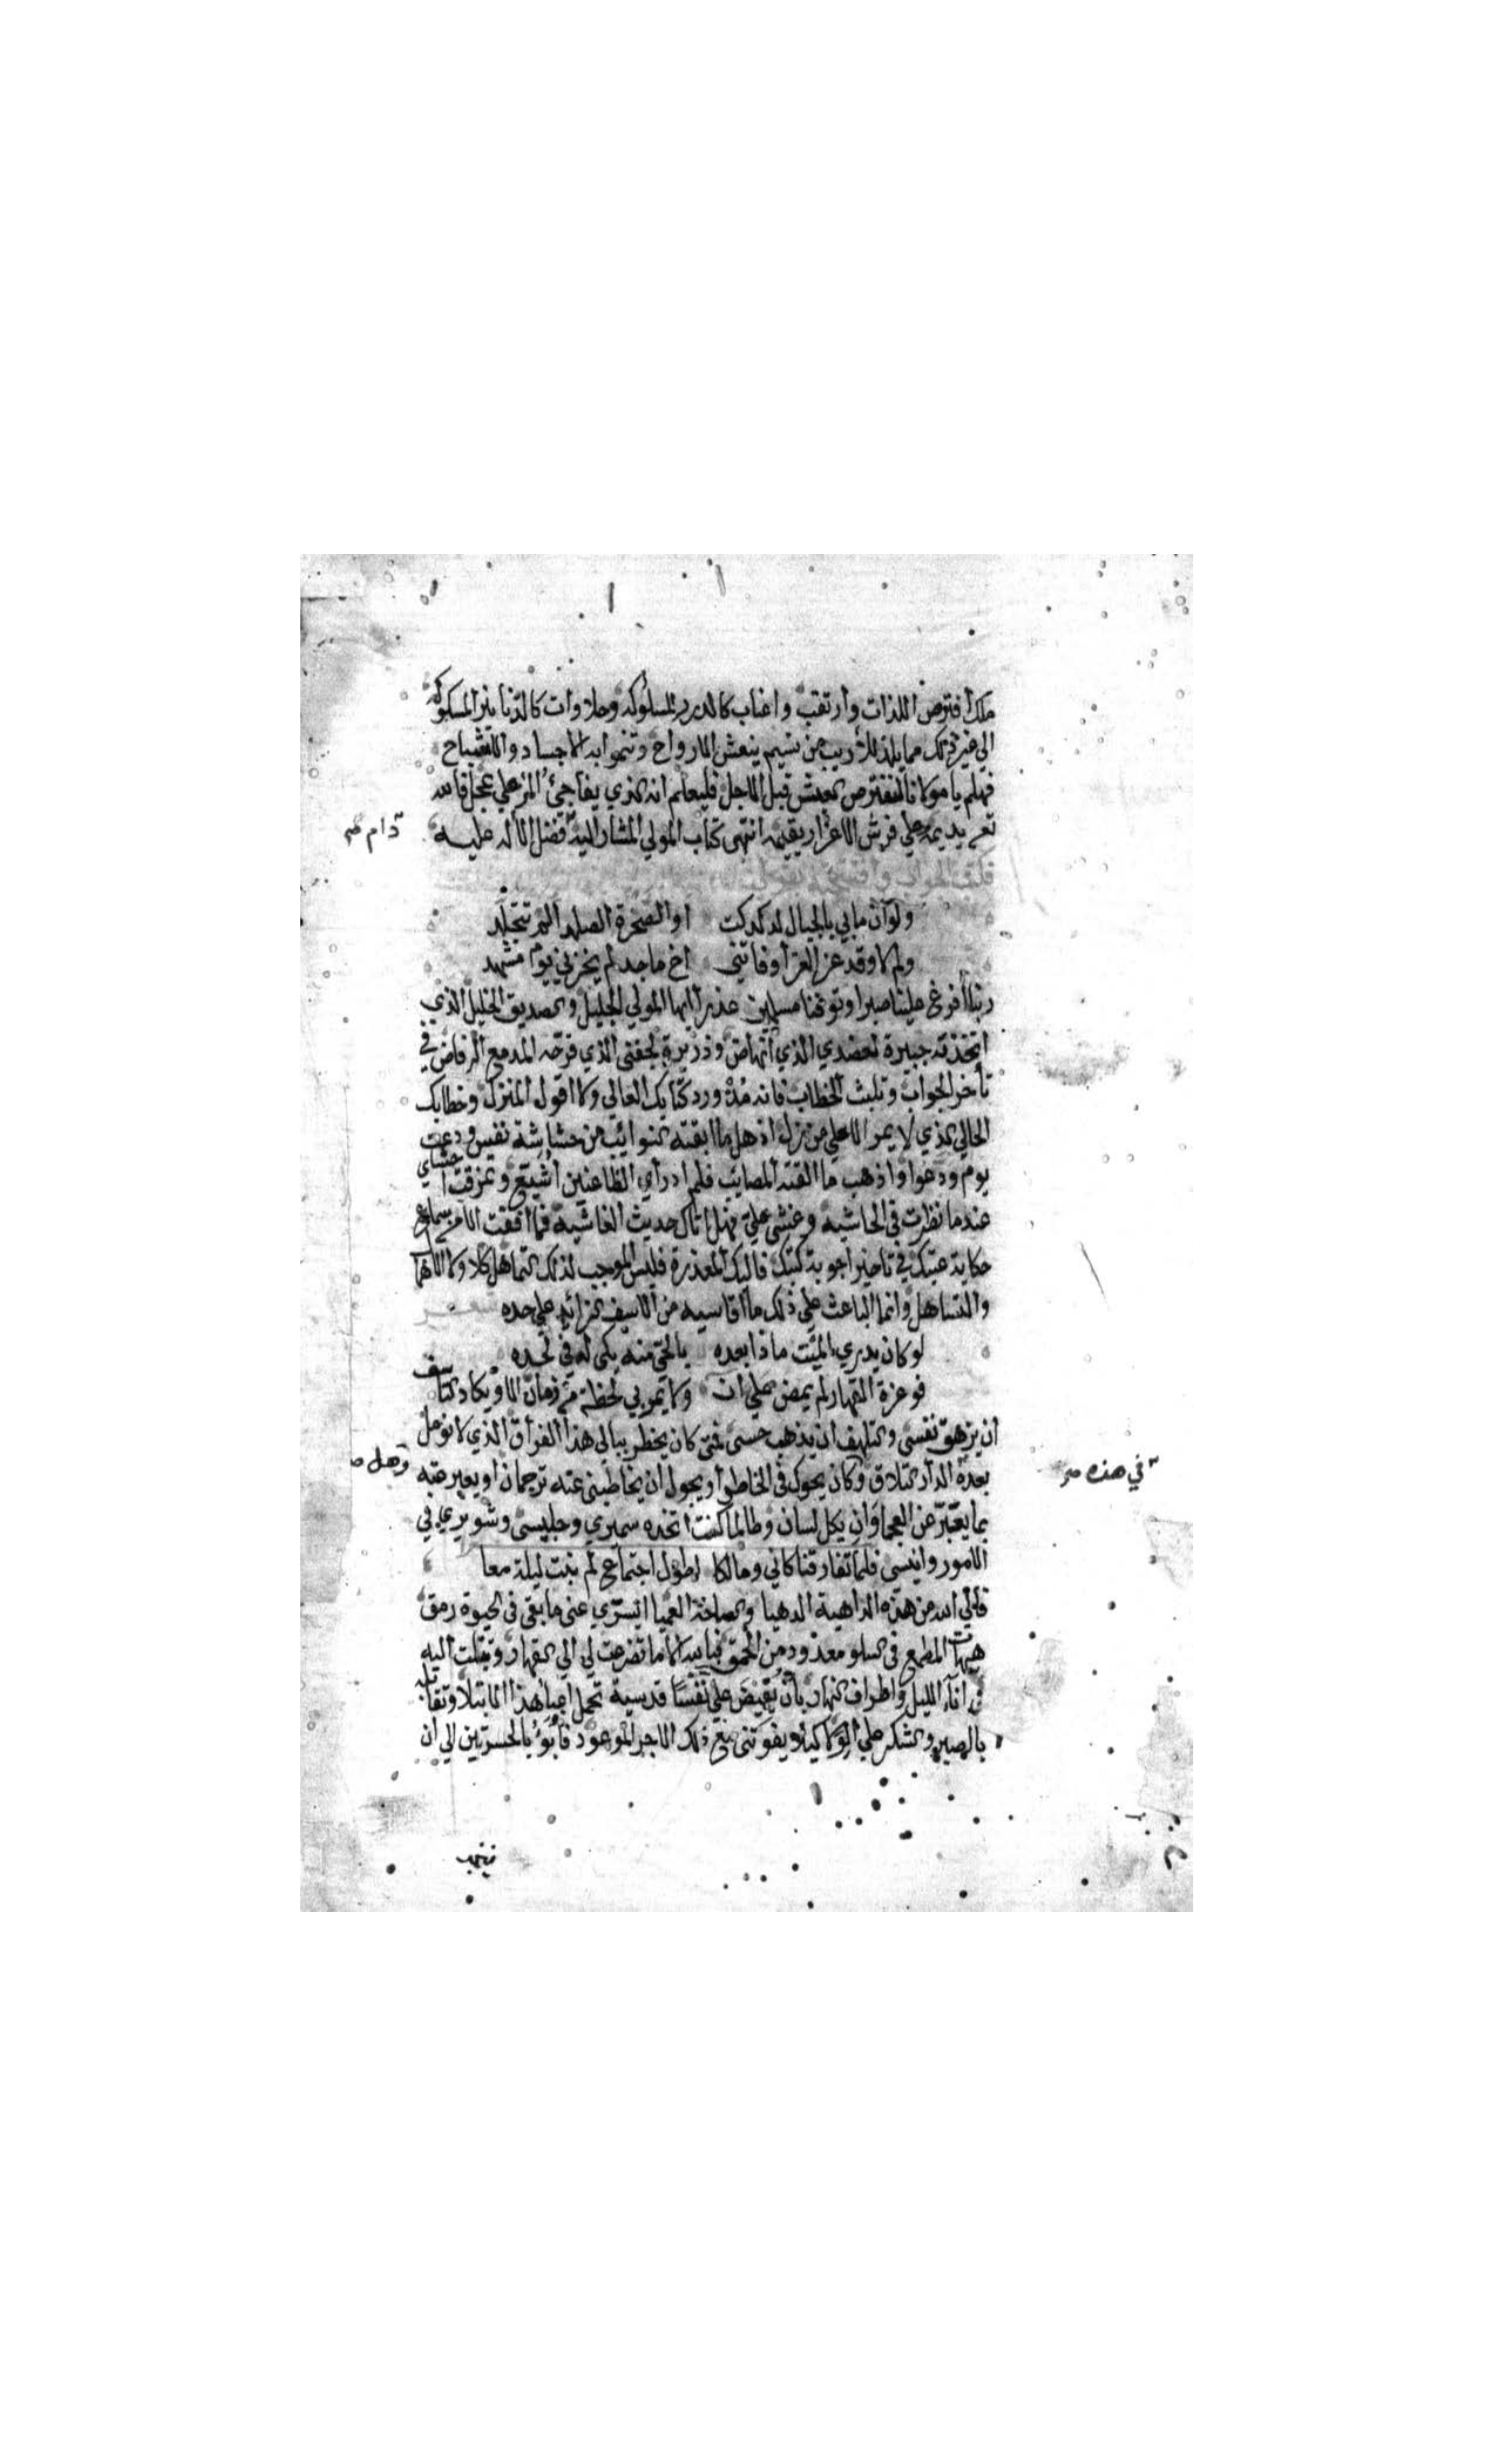 ملك افترص اللذات وارتقب واعناب كالدرر المسلوكه وحلاوات كالدنانير المسكوكه
الى غير ذلك مما يلذ للأديب من نسيم ينعش الارواح وتنموا به الاجساد والاشباح
فهلم يا مولانا لنفترص العيش قبل الاجل فليعلم انه الذي يفاجئ المرء على عجل فالله
تعم يديمه على فرش الاعزاز يقيمه انتهى كتاب المولى المشار اليه فضل الاله عليه
دام
فكتب الجواب وافتتحه بقوله
ولو ان ما بي بالجبال لدكدكت او الصخرة الصلد التم تتجلد
ولم لا وقد عز العزا وفاتني اخ ماجد لم يخزني يوم مشهد
ربنا أفرغ علينا صبرا وتوفنا مسلمين عذرا ايها المولى الجليل والصديق الخليل الذي
اتخذته جبيرة لعضدي الذي انهاض وذريرة لجفني الذي قرحه المدمع الرفاض في
تأخر الجواب وتلبث الخطاب فانه مذ ورد كتابك العالي ولا اقول المنزل وخطابك
الحالي الذي لا يمر الا على من نزل اذهل ما ابقته النوائب من حشاشة نفس ودعت
يوم ودعوا واذهب ما القته المصائب فلم ادر أي الظاعنين أشيع وتمزقت احشاي
عندما نظرت في الحاشيه وغشي علي فهل اتاك حديث الغاشيه فما افقت الا من سماع
حكاية عتبك في تاخير اجوبة كتبك فاليك المعذرة فليس الموجب لذلك التماهل كلا ولا الاهما
والتساهل وانما الباعث على ذلك ما اقاسيه من الاسف الزائد على حده شعر
لو كان يدري الميت ماذا بعده بالحي منه بكى له في لحده
فوعزة القهار لم يمض علي آن ولا تمر بي لحظة من زمان الا ويكاد التأسف
أن يزهق نفسي والتلهف ان يذهب حسي فمتى كان يخطر ببالي هذا الفراق الذي لا نؤمل
بعده الدار التلاق وكان يحوك في الخاطر أو يجول ان يخاطبني عنه ترجمان او يعبر عنه
في هذه
وهل
بما يعبر عن العجماوان بكل لسان وطالما كنت اتخذه سميري وجليسي وشويري في
الامور وانيسى فلما تفارقنا كاني ومالكا لطول اجتماع لم نبت ليلة معا
فالي الله من هذه الداهية الدهيا والصاخة العميا اليسرى عني ما بقى في الحيوة رمق
هيهات المطمع في السلو معدود من الحمق فبالله الا ما تضرعت لي الى القهار وتبتلت اليه
في اناء الليل واطراف النهار بأن يفيض علي نفسا قدسية تحمل اعبا هذا الابتلا وتقابله
بالصبر والشكر على الولا كيلا يفوتني مع ذلك الاجر الموعود فأبوء بالحسرتين الى ان